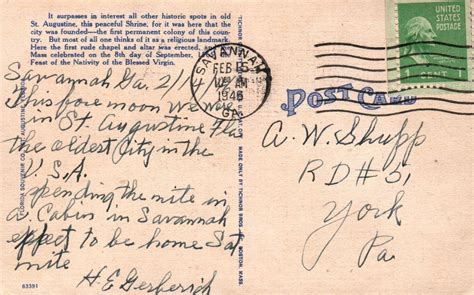 It surpasses in interest all other historic spots in old
St. Augustine, this peaceful Shrine, for it was here that the
city was founded—the first permanent colony of this
country. But most of all one thinks of it as a religious landmark.
Here the first rude chapel and altar was erected, and
Mass celebrated on the 8th day of September,
Feast of the Nativity of the Blessed Virgin.
Savannah Ga. 2/14
This fore moon we were
in St. Augustine Fla
the oldest City in the
U.S.A
spending the nite in
a Cabin in Savannah
expect to be home Sat
nite
H.E Gerberich
83391
FLORIDA SOUVENIR CO. ST. AUGUSTINE,
MADE ONLY BY TICHNOR BROS., BOSTON, MASS.
SAVANNAH
FEB 15
AM
1946
GA.
UNITED STATES
POSTAGE
1 CENT 1
POST CARD
A.W. Shupp
RD#5,
York
Pa.